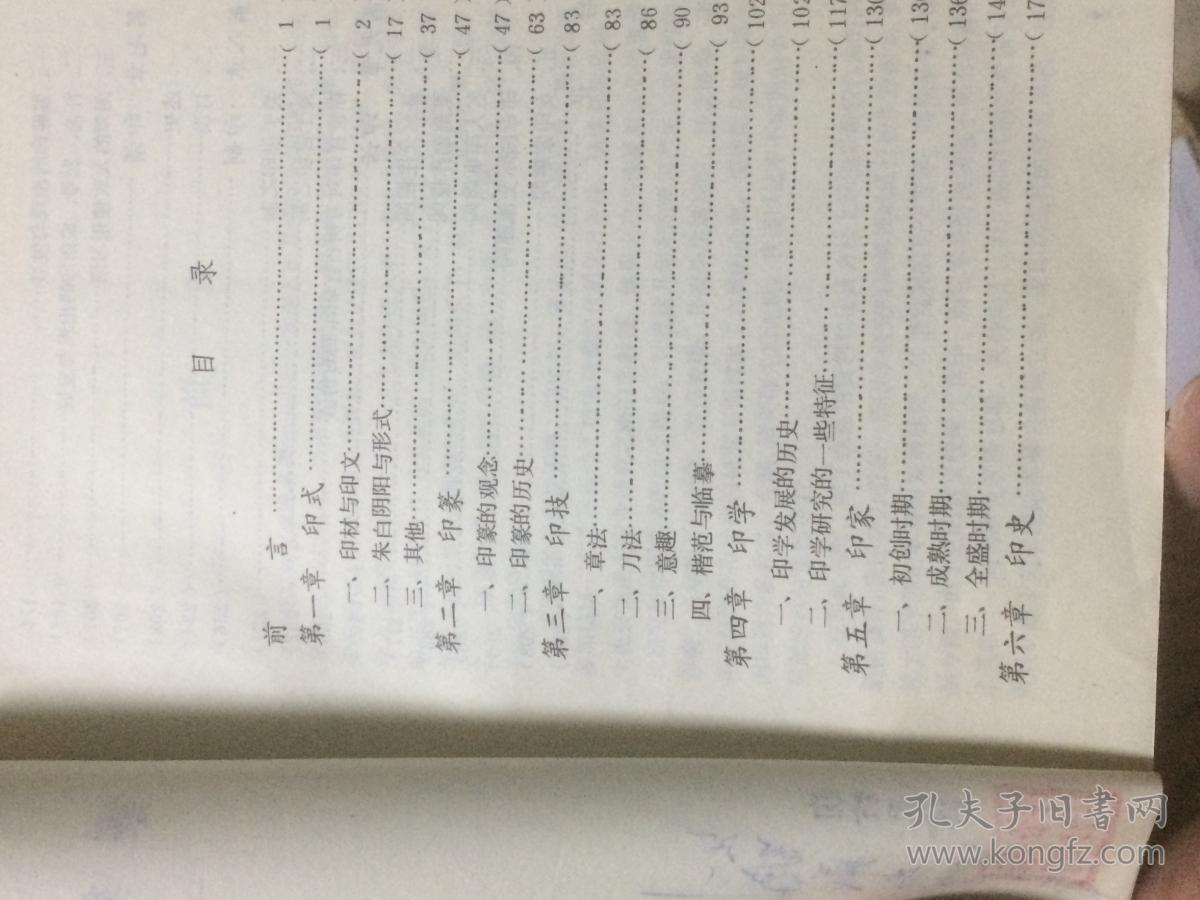 目 录
前 言……………………( 1 )
第一章 印式……………………( 1 )
一、印材与印文……………………( 2 )
二、朱白阴阳与形式……………………( 17 )
三、其他……………………( 37
第二章 印篆……………………( 47 )
一、印篆的观念……………………( 47 )
二、印篆的历史……………………( 63
第三章 印技……………………( 83
一、章法……………………( 83
二、刀法……………………( 86
三、意趣……………………( 90
四、楷范与临摹……………………( 93
第四章 印学……………………( 102
一、印学发展的历史……………………( 102
二、印学研究的一些特征……………………( 117
第五章 印家……………………( 130
一、初创时期……………………( 13
二、成熟时期……………………( 136
三、全盛时期……………………( 14
第六章 印史……………………( 17
孔夫子旧书网
www.kongfz.com